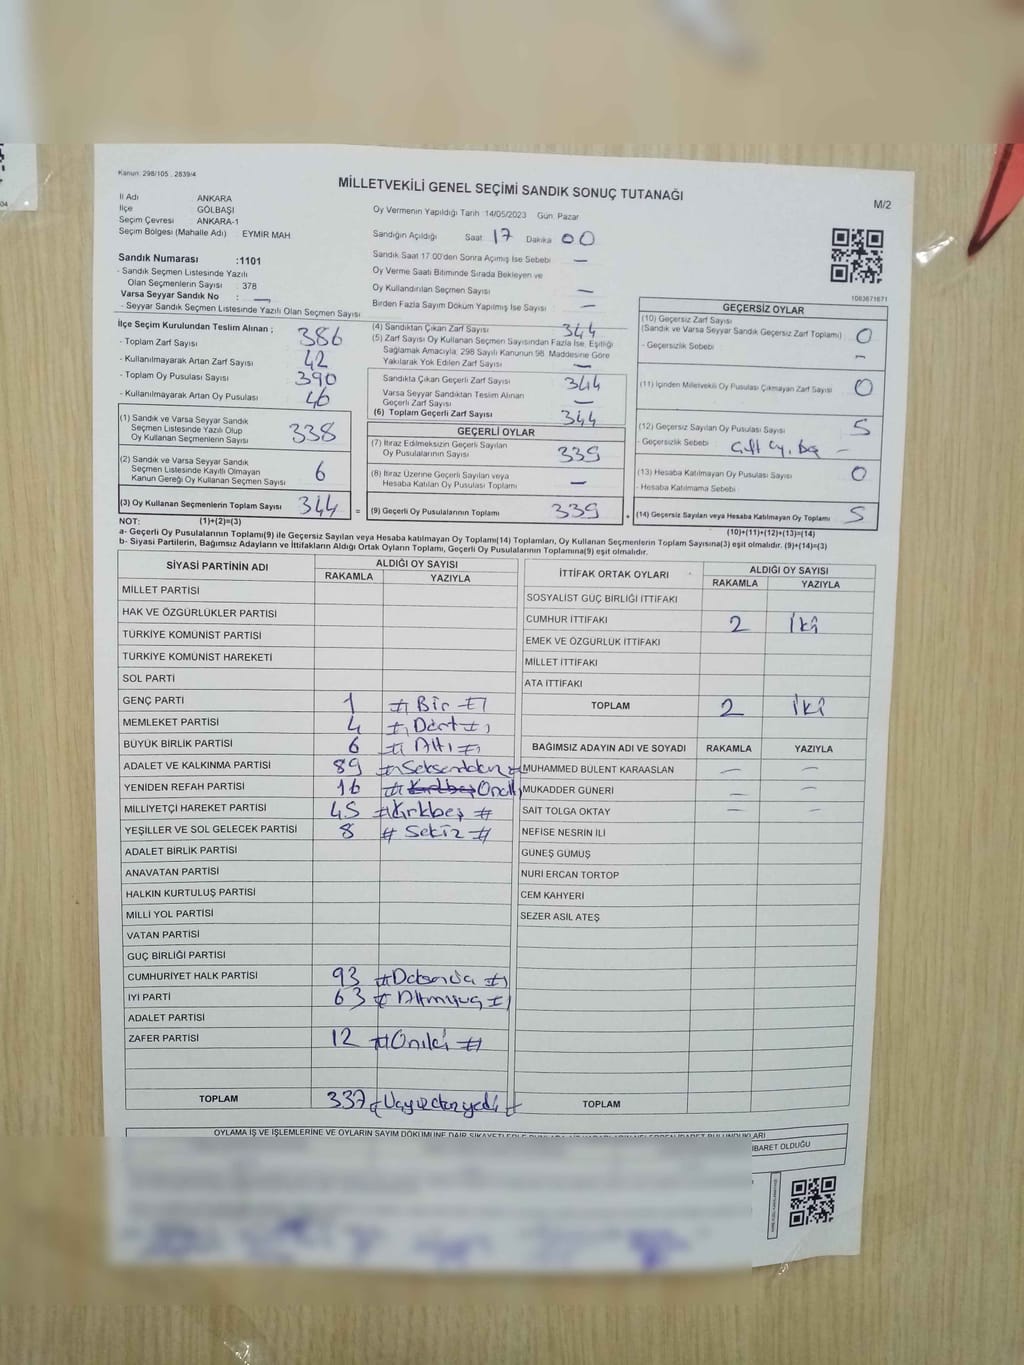 Kanun: 298/105 , 2839/4
MİLLETVEKİLİ GENEL SEÇİMİ SANDIK SONUÇ TUTANAĞI
M/2
İl Adı ANKARA
İlçe GÖLBAŞI
Seçim Çevresi ANKARA-1
Seçim Bölgesi (Mahalle Adı) : EYMİR MAH
Sandık Numarası :1101
- Sandık Seçmen Listesinde Yazılı
Olan Seçmenlerin Sayısı : 378
Varsa Seyyar Sandık No : —
- Seyyar Sandık Seçmen Listesinde Yazılı Olan Seçmen Sayısı
Oy Vermenin Yapıldığı Tarih 14/05/2023 Gün: Pazar
Sandığın Açıldığı Saat: 17 Dakika 00
Sandık Saat 17:00'den Sonra Açımış İse Sebebi —
Oy Verme Saati Bitiminde Sırada Bekleyen ve
Oy Kullandırılan Seçmen Sayısı —
Birden Fazla Sayım Döküm Yapılmış İse Sayısı —
1083671671
İlçe Seçim Kurulundan Teslim Alınan ;
- Toplam Zarf Sayısı 386
- Kullanılmayarak Artan Zarf Sayısı 42
- Toplam Oy Pusulası Sayısı 390
- Kullanılmayarak Artan Oy Pusulası 46
(1) Sandık ve Varsa Seyyar Sandık
Seçmen Listesinde Yazılı Olup
Oy Kullanan Seçmenlerin Sayısı 338
(2) Sandık ve Varsa Seyyar Sandık
Seçmen Listesinde Kayıtlı Olmayan
Kanun Gereği Oy Kullanan Seçmen Sayısı 6
(3) Oy Kullanan Seçmenlerin Toplam Sayısı 344 =
(4) Sandıktan Çıkan Zarf Sayısı 344
(5) Zarf Sayısı Oy Kullanan Seçmen Sayısından Fazla İse, Eşitliği
Sağlamak Amacıyla; 298 Sayılı Kanunun 98. Maddesine Göre
Yakılarak Yok Edilen Zarf Sayısı —
Sandıkta Çıkan Geçerli Zarf Sayısı 344
Varsa Seyyar Sandıktan Teslim Alınan
Geçerli Zarf Sayısı —
(6) Toplam Geçerli Zarf Sayısı 344
GEÇERLİ OYLAR
(7) İtiraz Edilmeksizin Geçerli Sayılan
Oy Pusulalarının Sayısı 339
(8) İtiraz Üzerine Geçerli Sayılan veya
Hesaba Katılan Oy Pusulası Toplamı —
(9) Geçerli Oy Pusulalarının Toplamı 339 +
GEÇERSİZ OYLAR
(10) Geçersiz Zarf Sayısı
(Sandık ve Varsa Seyyar Sandık Geçersiz Zarf Toplamı) 0
- Geçersizlik Sebebi : —
(11) İçinden Milletvekili Oy Pusulası Çıkmayan Zarf Sayısı 0
(12) Geçersiz Sayılan Oy Pusulası Sayısı 5
- Geçersizlik Sebebi : Çift oy, boş —
(13) Hesaba Katılmayan Oy Pusulası Sayısı 0
- Hesaba Katılmama Sebebi :
(14) Geçersiz Sayılan veya Hesaba Katılmayan Oy Toplamı 5
NOT: (1)+(2)=(3) (10)+(11)+(12)+(13)=(14)
a- Geçerli Oy Pusulalarının Toplamı(9) ile Geçersiz Sayılan veya Hesaba katılmayan Oy Toplamı(14) Toplamları, Oy Kullanan Seçmenlerin Toplam Sayısına(3) eşit olmalıdır. (9)+(14)=(3)
b- Siyasi Partilerin, Bağımsız Adayların ve İttifakların Aldığı Ortak Oyların Toplamı, Geçerli Oy Pusulalarının Toplamına(9) eşit olmalıdır.
SİYASİ PARTİNİN ADI ALDIĞI OY SAYISI
RAKAMLA YAZIYLA
MİLLET PARTİSİ
HAK VE ÖZGÜRLÜKLER PARTİSİ
TÜRKİYE KOMÜNİST PARTİSİ
TÜRKİYE KOMÜNİST HAREKETİ
SOL PARTİ
GENÇ PARTİ 1 # Bir #
MEMLEKET PARTİSİ 4 # Dört #
BÜYÜK BİRLİK PARTİSİ 6 # Altı #
ADALET VE KALKINMA PARTİSİ 89 # Seksendokuz #
YENİDEN REFAH PARTİSİ 16 # Kırkbeş Onaltı
MİLLİYETÇİ HAREKET PARTİSİ 45 # Kırkbeş #
YEŞİLLER VE SOL GELECEK PARTİSİ 8 # Sekiz #
ADALET BİRLİK PARTİSİ
ANAVATAN PARTİSİ
HALKIN KURTULUŞ PARTİSİ
MİLLİ YOL PARTİSİ
VATAN PARTİSİ
GÜÇ BİRLİĞİ PARTİSİ
CUMHURİYET HALK PARTİSİ 93 # Doksanüç #
İYİ PARTİ 63 # Altmışüç #
ADALET PARTİSİ
ZAFER PARTİSİ 12 # Oniki #
TOPLAM 337 # Üçyüzotuzyedi #
İTTİFAK ORTAK OYLARI ALDIĞI OY SAYISI
RAKAMLA YAZIYLA
SOSYALİST GÜÇ BİRLİĞİ İTTİFAKI
CUMHUR İTTİFAKI 2 İki
EMEK VE ÖZGÜRLÜK İTTİFAKI
MİLLET İTTİFAKI
ATA İTTİFAKI
TOPLAM 2 İki
BAĞIMSIZ ADAYIN ADI VE SOYADI RAKAMLA YAZIYLA
MUHAMMED BÜLENT KARAASLAN — —
MUKADDER GÜNERİ — —
SAİT TOLGA OKTAY — —
NEFİSE NESRİN İLİ
GÜNEŞ GÜMÜŞ
NURİ ERCAN TORTOP
CEM KAHYERİ
SEZER ASİL ATEŞ
TOPLAM
OYLAMA İŞ VE İŞLEMLERİNE VE OYLARIN SAYIM DÖKÜMÜNE DAİR
İBARET OLDUĞU